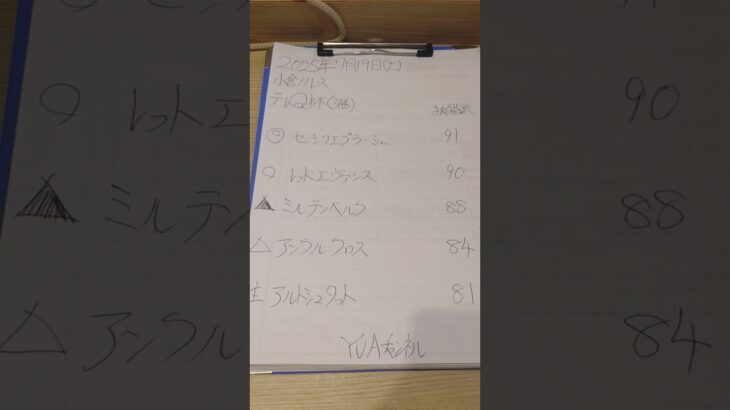 2025年7月19日(土)
小倉11レス
テレQ杯(3勝) 指数
◎ セシリエプラージュ 91
○ レッドエヴァンス 90
▲ ミルテンベルク 88
△ アンクルクロス 84
注 アルトシュタット 81
YUAチャンネル